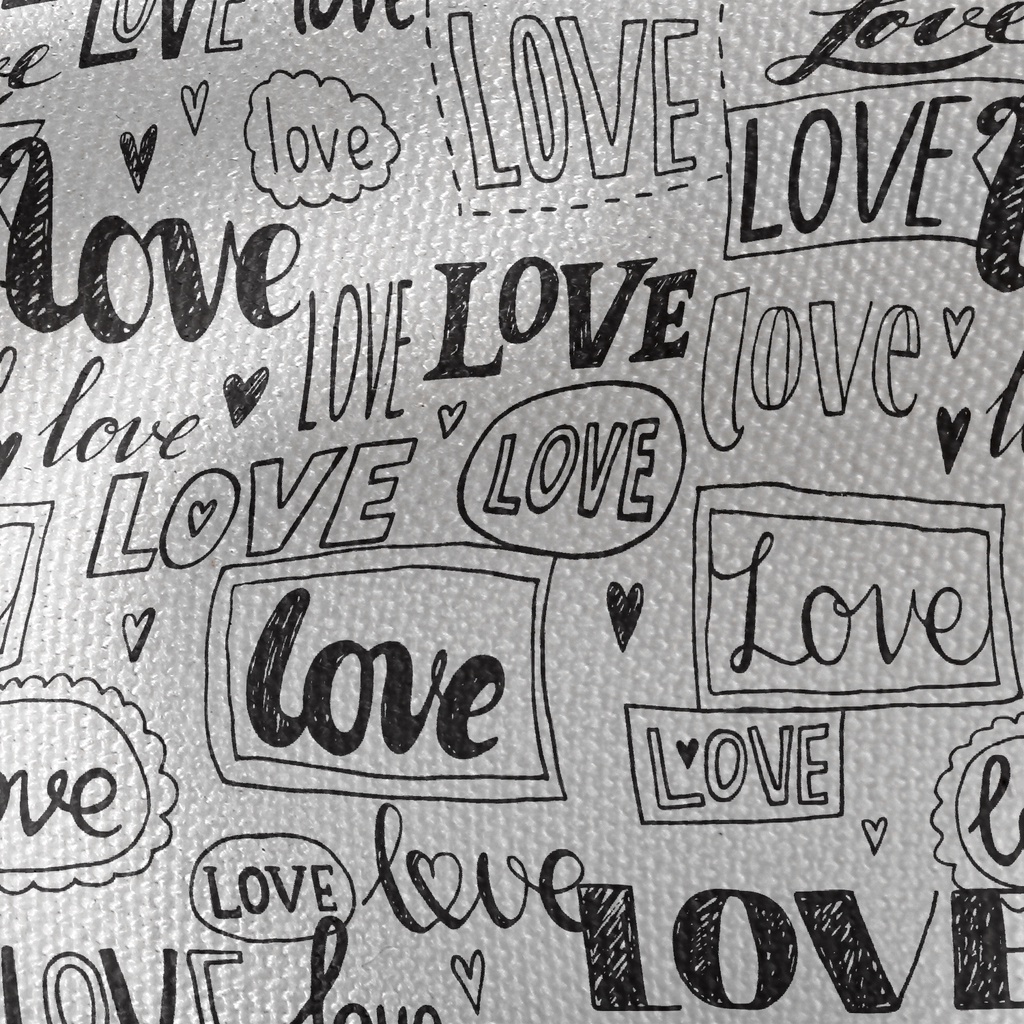 LOVE love
love
LOVE
Love
LOVE
love
LOVE
LOVE
love
love
LOVE
LOVE
love
Love
LOVE
LOVE
love
LOVE
LOVE
love